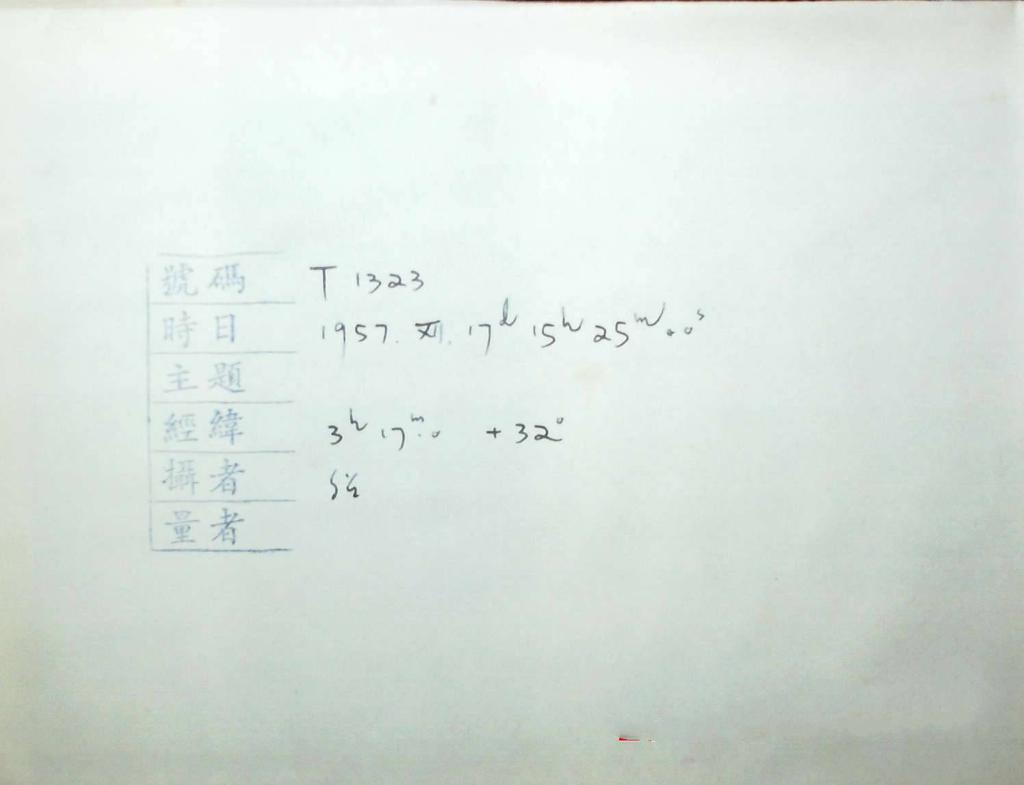 號碼 T 1323
時日 1957. XII. 17d 15h 25m 00s
主題
經緯 3h 17m.0 +32°
攝者
量者